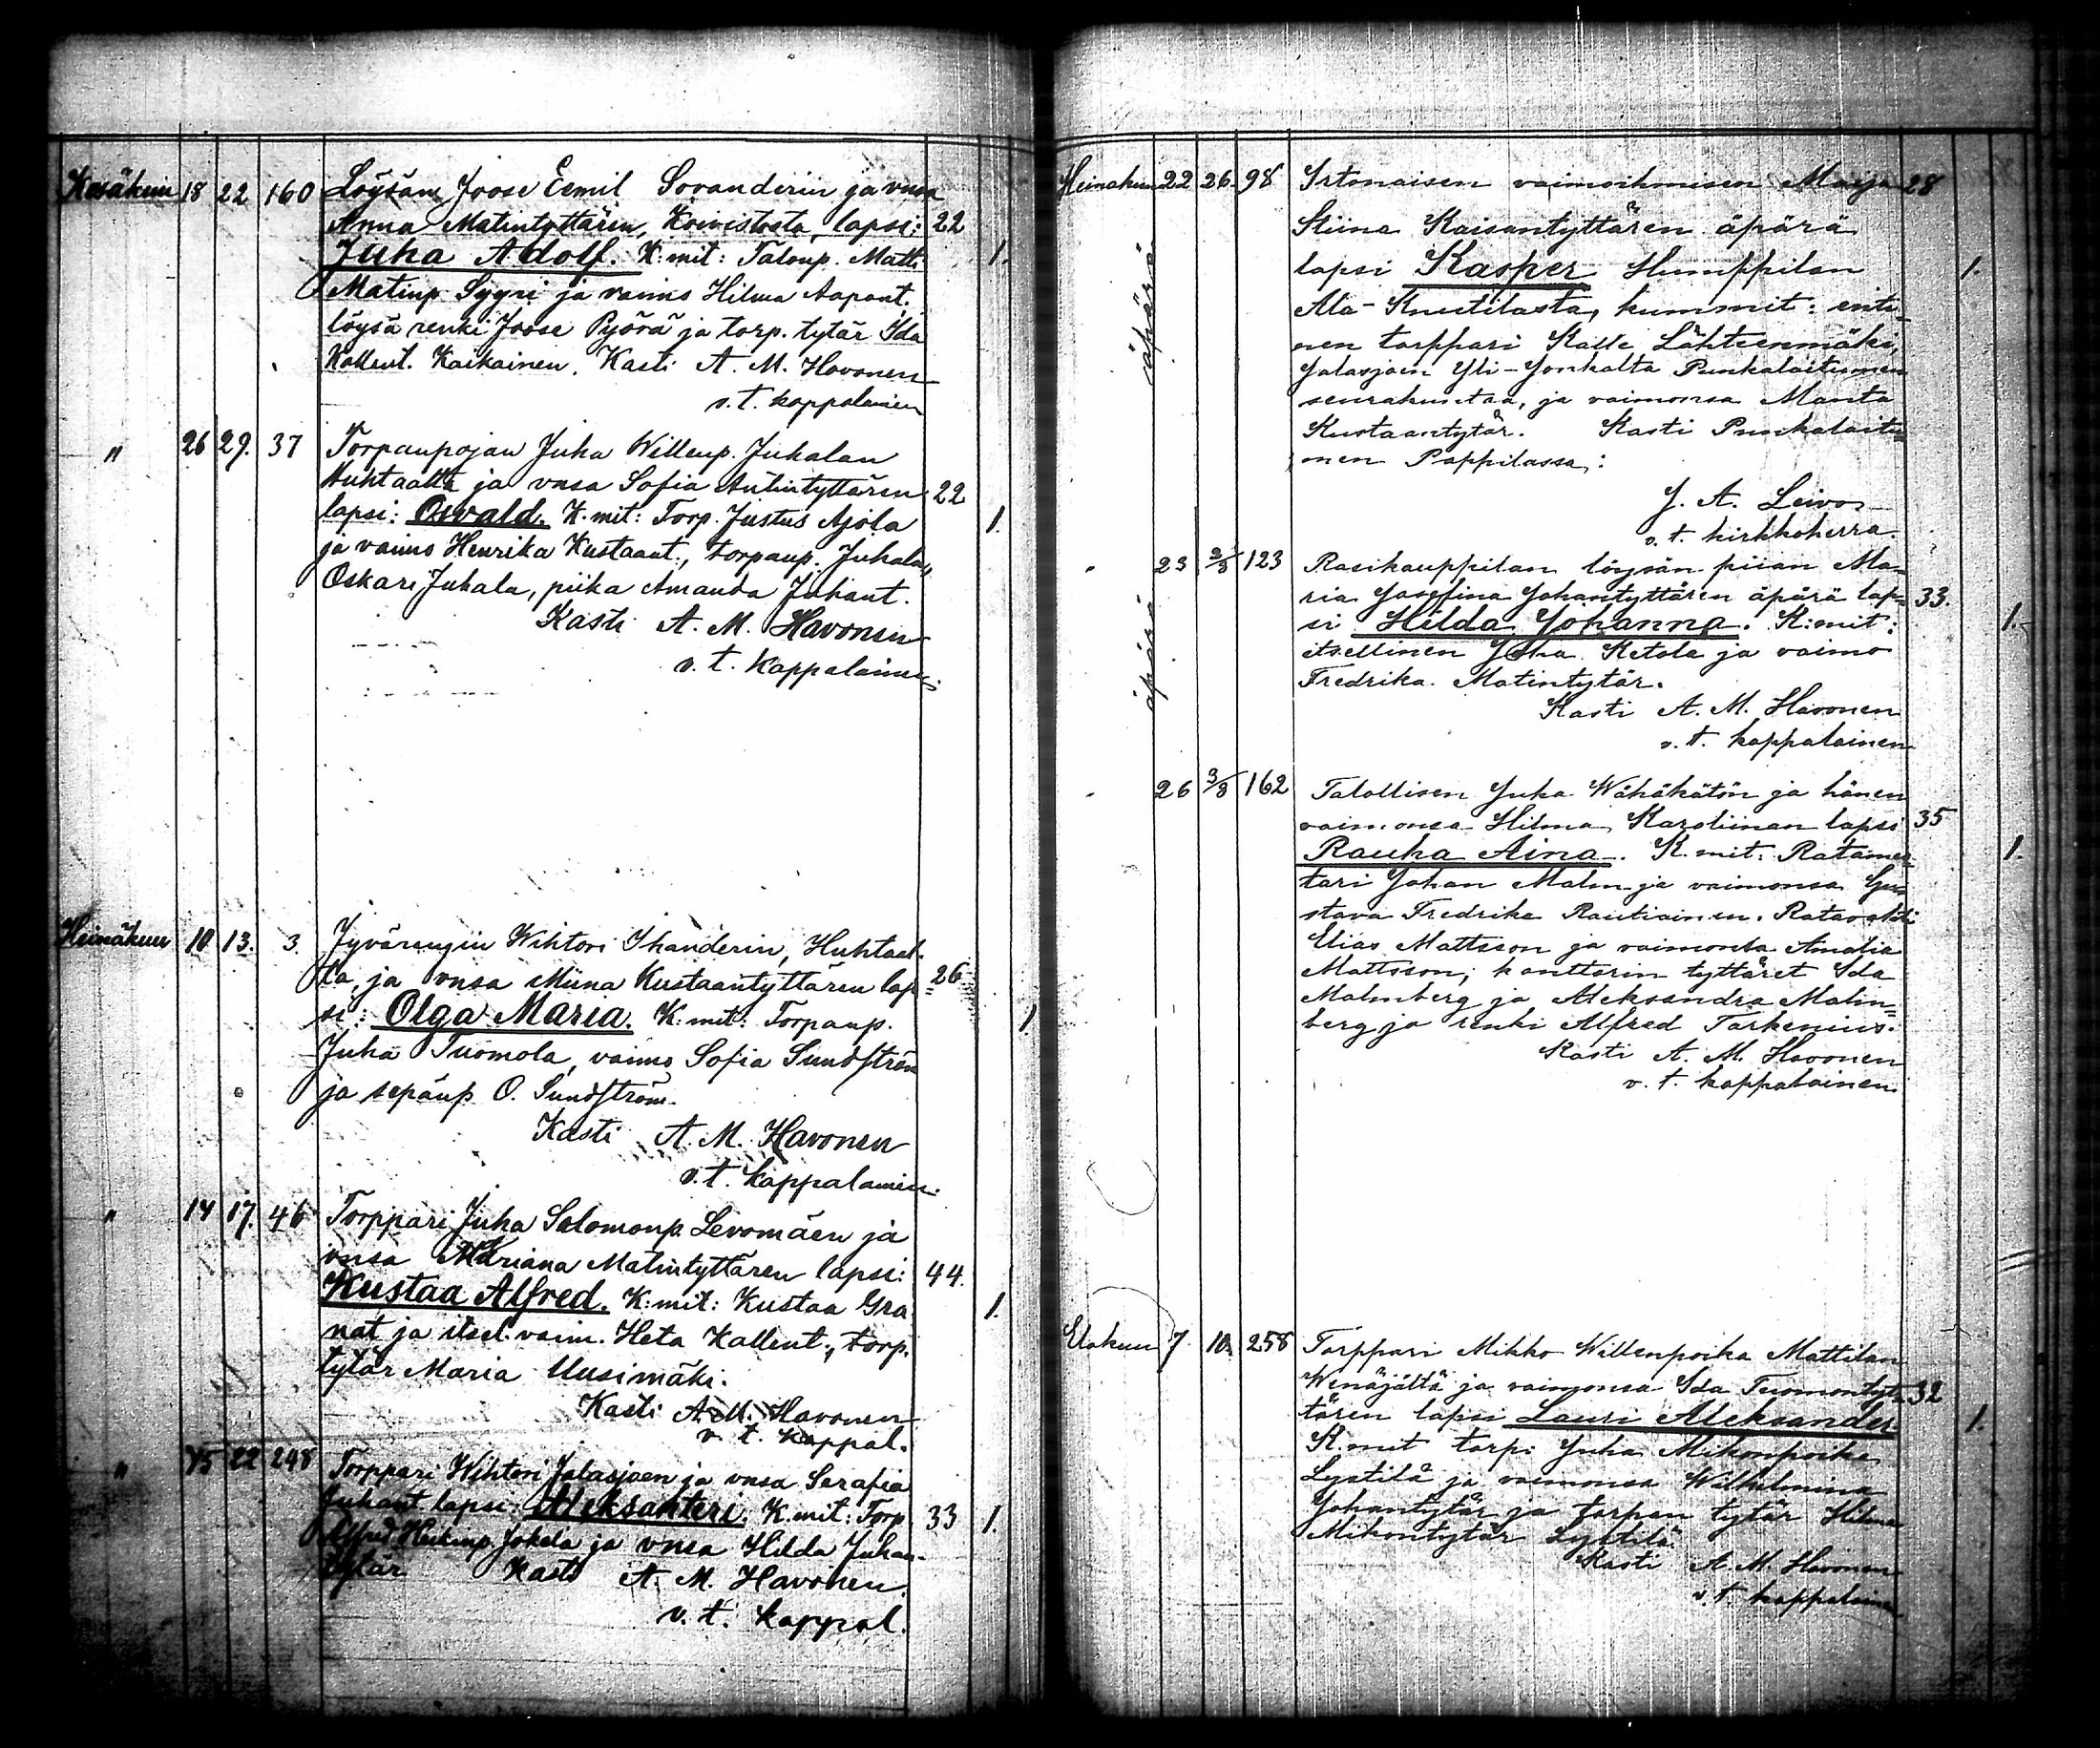 Kesäkuun 18 22 160 Löysän Joose Eemil Sovanderin ja vnsa
Anna Matintyttären, Koivistosta, lapsi: 22
Juha Adolf. K:mit: Taloup. Matti 1.
Matinp. Syyri ja vaimo Hilma Aapont.
löysä renki Joose Pyörä ja torp. tytär Ida
Kallent. Kaikainen. Kasti A. M. Havonen
v. t. kappalainen
" 26 29. 37 Torpanpojan Juha Willenp. Juhalan
Huhtaalta ja vnsa Sofia Antintyttären 22
lapsi: Oswald. K.mit: Torp. Justus Ajola 1.
ja vaimo Henrika Kustaant., torpanp. Juhala,
Oskari Juhala, piika Amanda Juhant.
Kasti A. M. Havonen
v. t. kappalainen.
Heinäkuu 10 13. 3. Jyvärengin Wihtori Ihanderin, Huhtaal-
ta, ja vnsa Miina Kustaantyttären lap= 26
si: Olga Maria. K:mit: Torpanp. 1
Juha Tuomola, vaimo Sofia Sundström
ja sepänp O. Sundström.
Kasti A. M. Havonen
v. t. kappalainen.
" 14 17. 46 Torppari Juha Salomonp. Levomäen ja
vnsa Mariana Matintyttären lapsi: 44.
Kustaa Alfred. K:mit: Kustaa Gra- 1.
nat ja itsel. vaim. Heta Kallent., torp.
tytär Maria Uusimäki.
Kasti A. M. Havonen
v. t. kappal.
" 15 22 248 Torppari Wihtori Jalasjoen ja vnsa Serafia
Juhant. lapsi: Aleksanteri. K.mit: Torp. 33 1.
Alfred Heikinp. Jokela ja vnsa Hilda Juhan-
tytär. Kasti A. M. Havonen.
v. t. kappal.
Heinäkuu 22 26. 98 Irtonaisen vaimoihmisen Maija 28
Stiina Kaisantyttären äpärä
äpärä lapsi Kasper Humppilan 1.
Ala-Knuutilasta, kummit: enti-
nen torppari Kalle Lähteenmäki,
Jalasjoen Yli-Jonkalta Punkalaitumen
seurakuntaa, ja vaimonsa Manta
Kustaantytär. Kasti Punkalaitu-
men Pappilassa:
J. A. Leivo
v. t. kirkkoherra.
" 23 2/8 123 Rasikauppilan löysän piian Ma-
ria Josefina Johantyttären äpärä lap- 33.
äpärä si Hilda Johanna. K:mit: 1.
itsellinen Juha Ketola ja vaimo
Fredrika Matintytär.
Kasti A. M. Havonen
v. t. kappalainen
" 26 3/8 162 Talollisen Juha Wähäkätön ja hänen
vaimonsa Hilma Karoliinan lapsi 35
Rauha Aina. K.mit: Ratames- 1.
tari Johan Malm ja vaimonsa Gu-
stava Fredrika Rautiainen. Ratavahti
Elias Mattsson ja vaimonsa Amalia
Mattsson, kanttorin tyttäret Ida
Malmberg ja Aleksandra Malm=
berg ja renki Alfred Tarkenius.
Kasti A. M. Havonen
v. t. kappalainen.
Elokuun 7 10. 258 Torppari Mikko Willenpoika Mattilan
Wenäjältä ja vaimonsa Ida Tuomontyt- 32
tären lapsi Lauri Aleksander 1.
K.mit torp: Juha Mikonpoika
Lystilä ja vaimonsa Wilhelmina
Johantytär ja torpan tytär Hilma
Mikontytär Lystilä.
Kasti A. M. Havonen
v. t. kappalainen